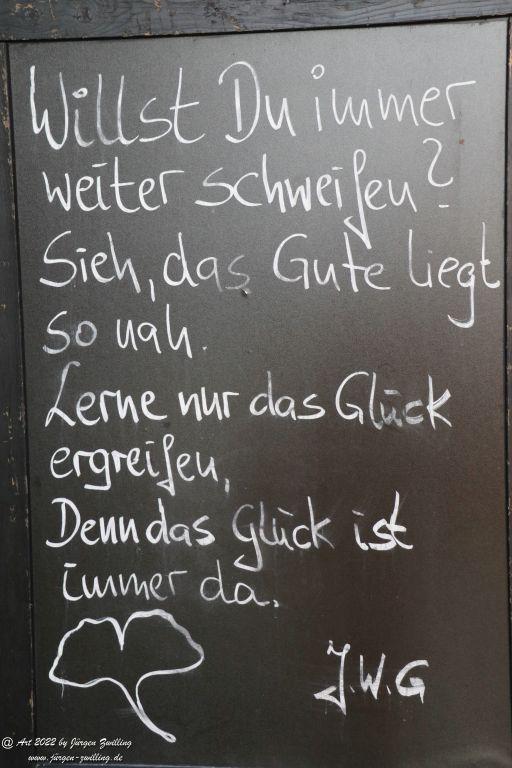 Willst Du immer
weiter schweifen?
Sieh, das Gute liegt
so nah.
Lerne nur das Glück
ergreifen,
Denn das Glück ist
immer da.
J.W.G
@ Art 2022 by Jürgen Zwilling
www.jürgen-zwilling.de